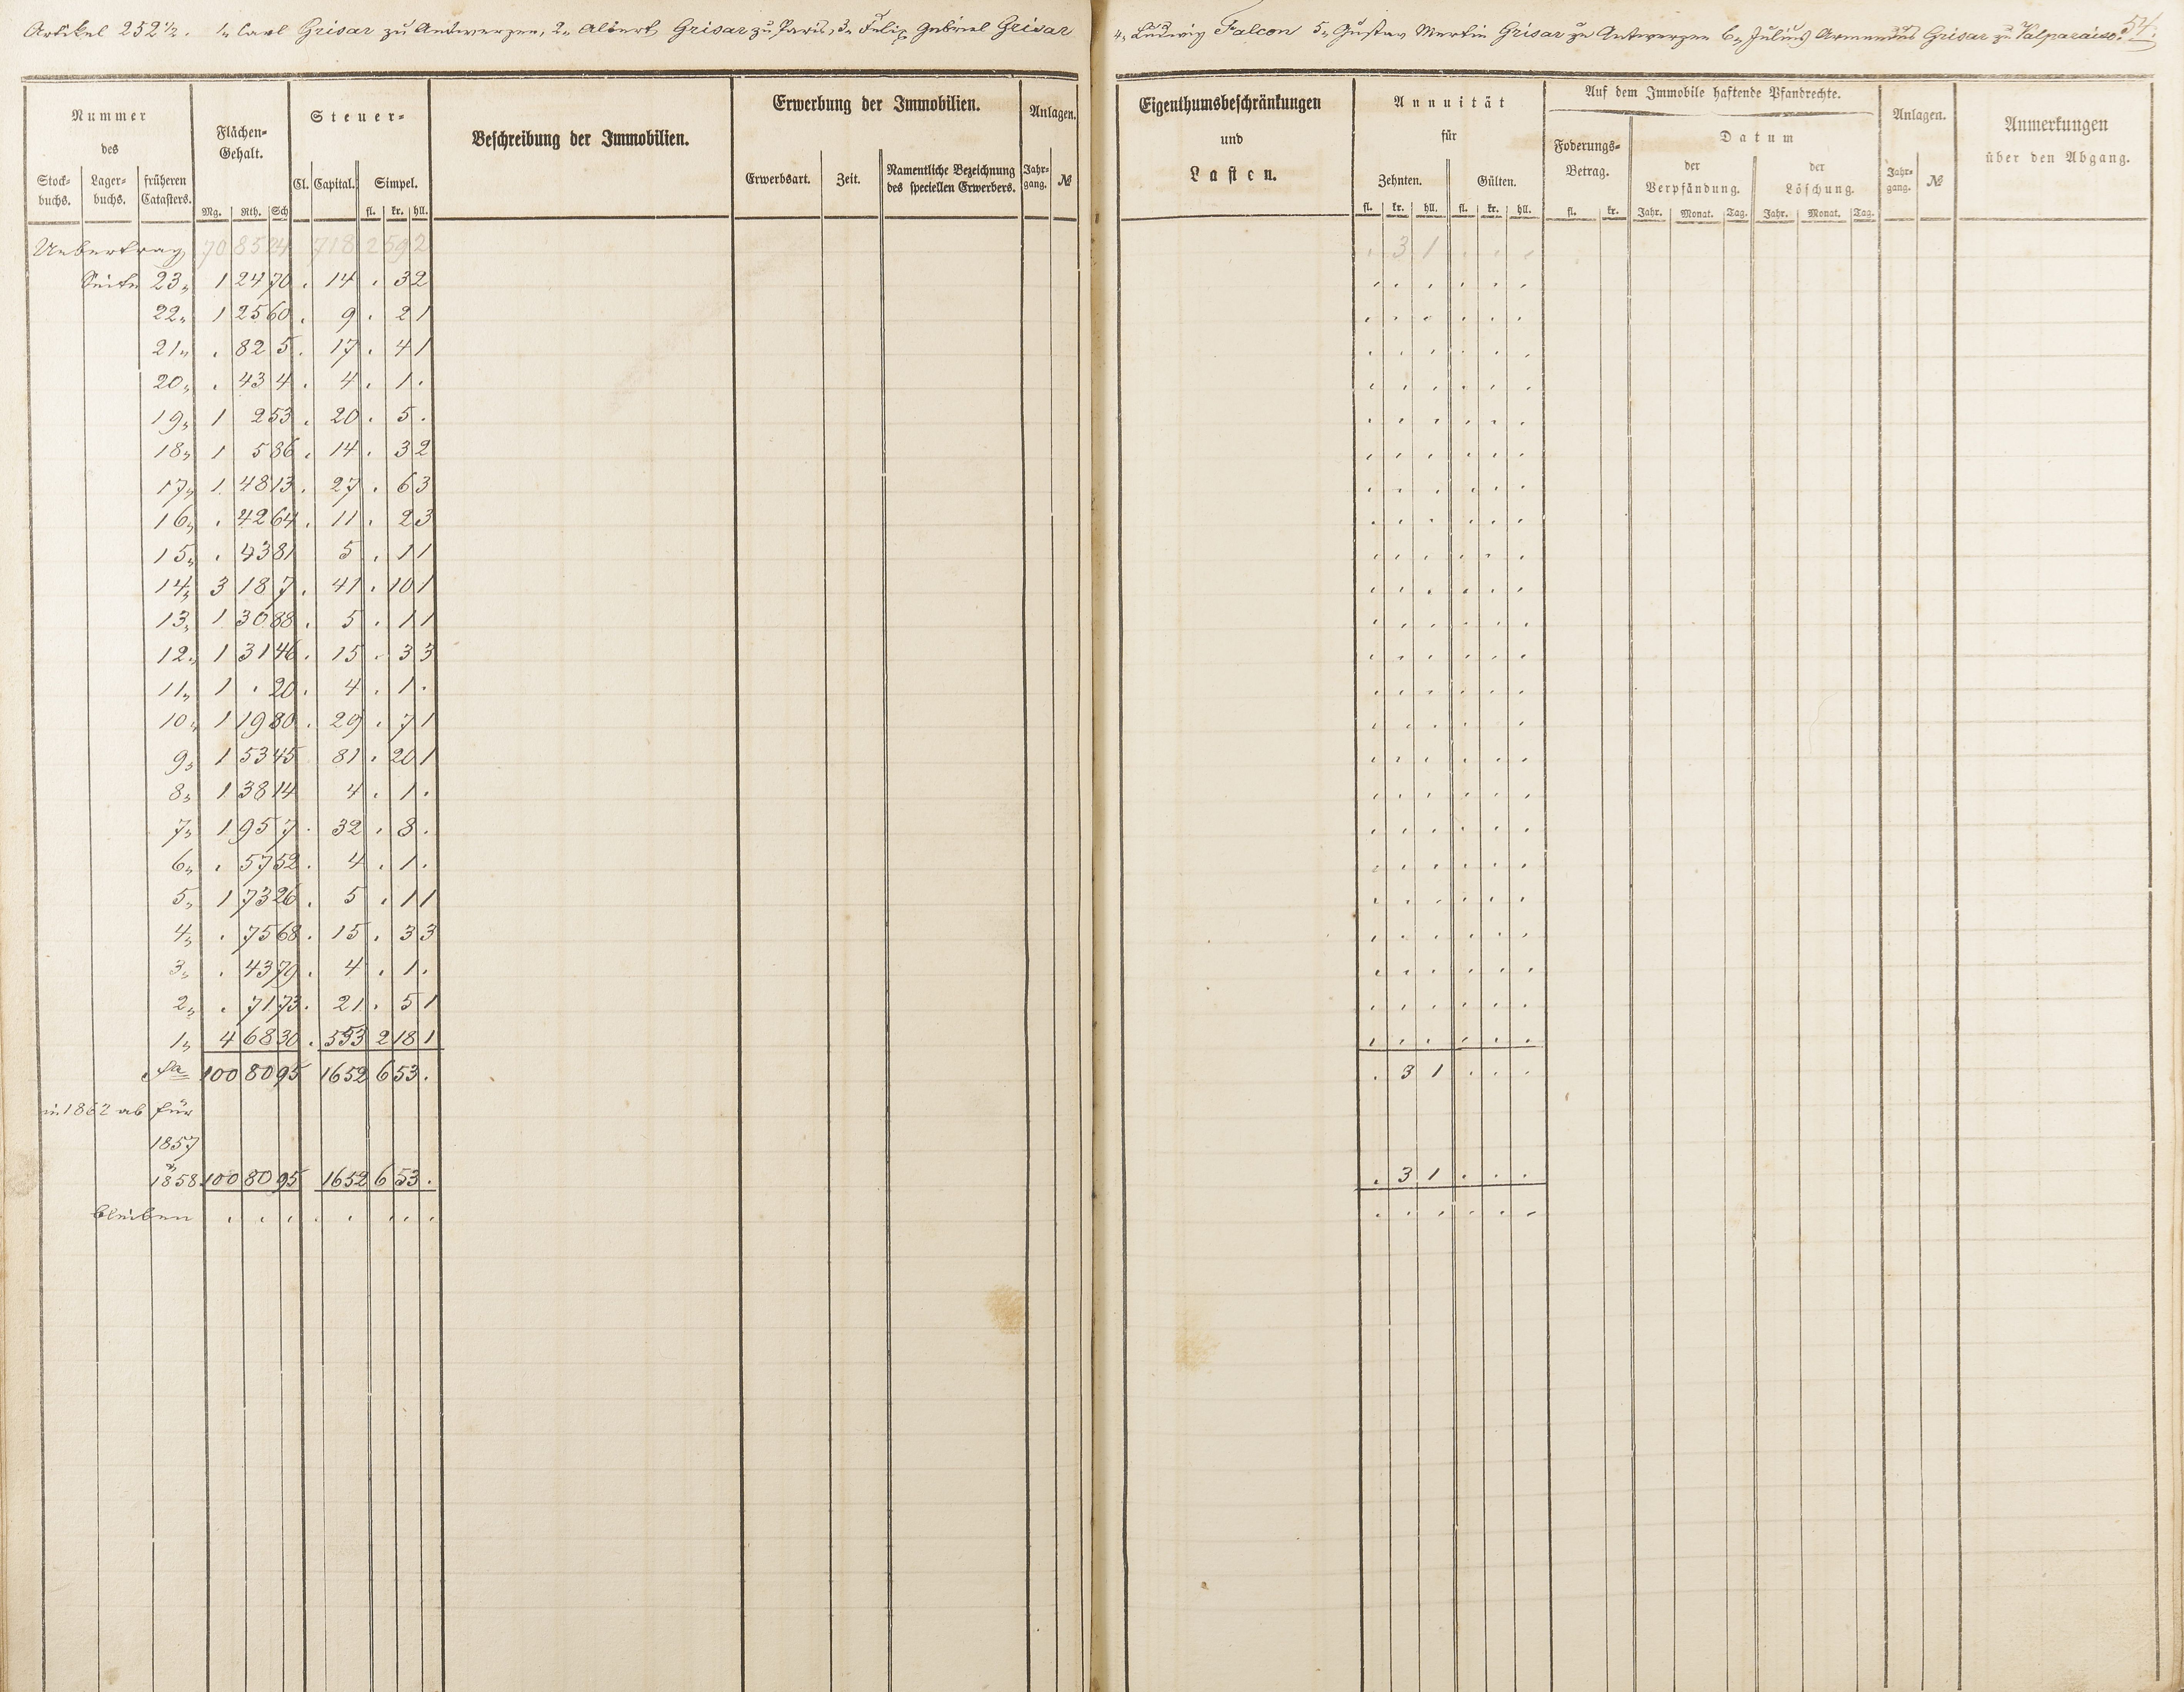 Artikel 252 1/2. 1, Carl Grisar zu Antwerpen, 2, Albert Grisar zu Paris, 3, Felix Gabriel Grisar
4, Ludwig Falcon 5, Gustav Martin Grisar zu Antwerpen 6, Julius Grisar zu Valparaiso. 54.
Nummer
des
Stock-buchs. Lager-buchs. früheren Catasters.
Flächen-Gehalt.
Mg. Rth. Sch
Steuer-
Cl. Capital. Simpel.
fl. kr. hll.
Beschreibung der Immobilien.
Erwerbung der Immobilien.
Erwerbsart. Zeit. Namentliche Bezeichnung des speciellen Erwerbers.
Anlagen.
Jahr-gang. №
Eigenthumsbeschränkungen
und
Lasten.
Annuität
für
Zehnten. Gülten.
fl. kr. hll. fl. kr. hll.
Auf dem Immobile haftende Pfandrechte.
Foderungs-Betrag.
fl. kr.
Datum
der Verpfändung. der Löschung.
Jahr. Monat. Tag. Jahr. Monat. Tag.
Anlagen.
Jahr-gang. №
Anmerkungen
über den Abgang.
Uebertrag 70 85 24 718 2 59 2 . 3 1 . . .
Seite 23, 1 24 70 . 14 . 3 2 . . . . . .
22, 1 25 60 . 9 . 2 1 . . . . . .
21, . 82 5 . 17 . 4 1 . . . . . .
20, . 43 4 . 4 . 1 . . . . . . .
19, 1 2 53 . 20 . 5 . . . . . . .
18, 1 5 86 . 14 . 3 2 . . . . . .
17, 1 48 13 . 27 . 6 3 . . . . . .
16, . 42 64 . 11 . 2 3 . . . . . .
15, . 43 81 5 . 1 1 . . . . . .
14, 3 18 7 . 41 . 10 1 . . . . . .
13, 1 30 88 . 5 . 1 1 . . . . . .
12, 1 31 46 . 15 . 3 3 . . . . . .
11, 1 . 20 . 4 . 1 . . . . . . .
10, 1 19 80 . 29 . 7 1 . . . . .
9, 1 53 45 81 . 20 1 . . . . . .
8, 1 38 14 4 . 1 . . . . . . .
7, 1 95 7 . 32 . 8 . . . . . . .
6, . 57 52 . 4 . 1 . . . . . . .
5, 1 73 26 . 5 . 1 1 . . . . . .
4, . 75 68 . 15 . 3 3 . . . . . .
3, . 43 79 . 4 . 1 . . . . . . .
2, . 71 73 . 21 . 5 1 . . . . . .
1, 4 68 30 . 553 2 18 1 . . . . . .
Sa 100 80 95 1652 6 53 . . 3 1 . . .
in 1862 ab für
1857
u
1858 100 80 95 1652 6 53 . . 3 1 . . .
bleiben . . . . . . . . . . . . . .